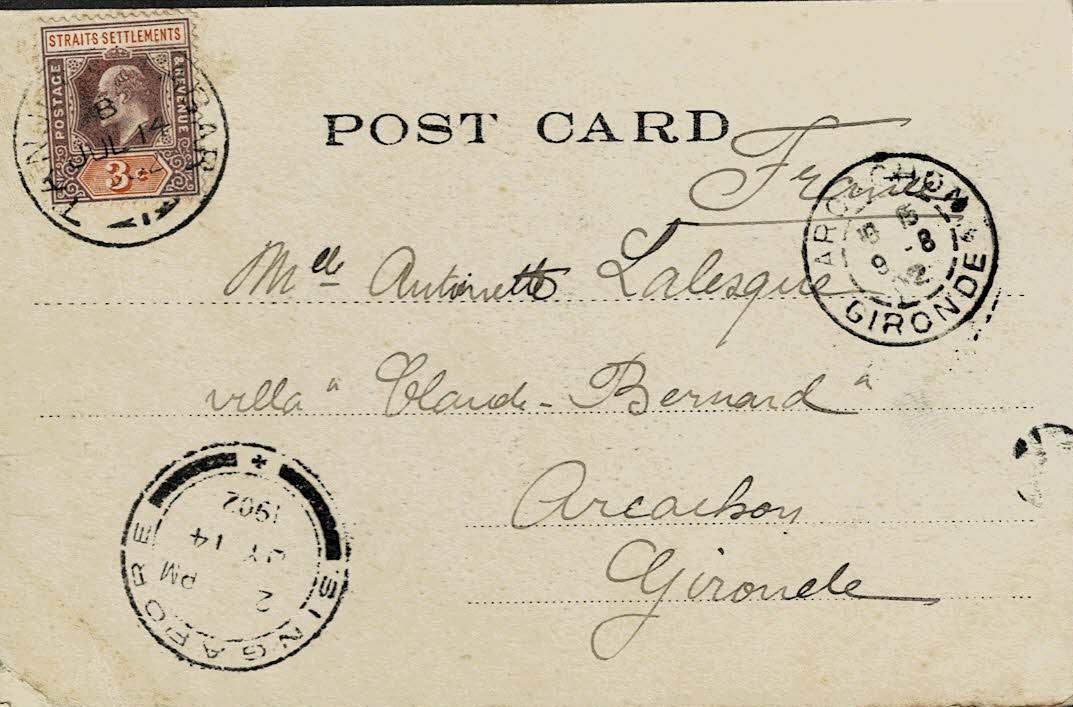 STRAITS SETTLEMENTS
POSTAGE & REVENUE
3c
B
JUL 14
POST CARD
France
ARCACHON
GIRONDE
Mlle Antoinette Lalesque
villa "Claude-Bernard"
SINGAPORE
2 PM
JY 14
1902
Arcachon
Gironde